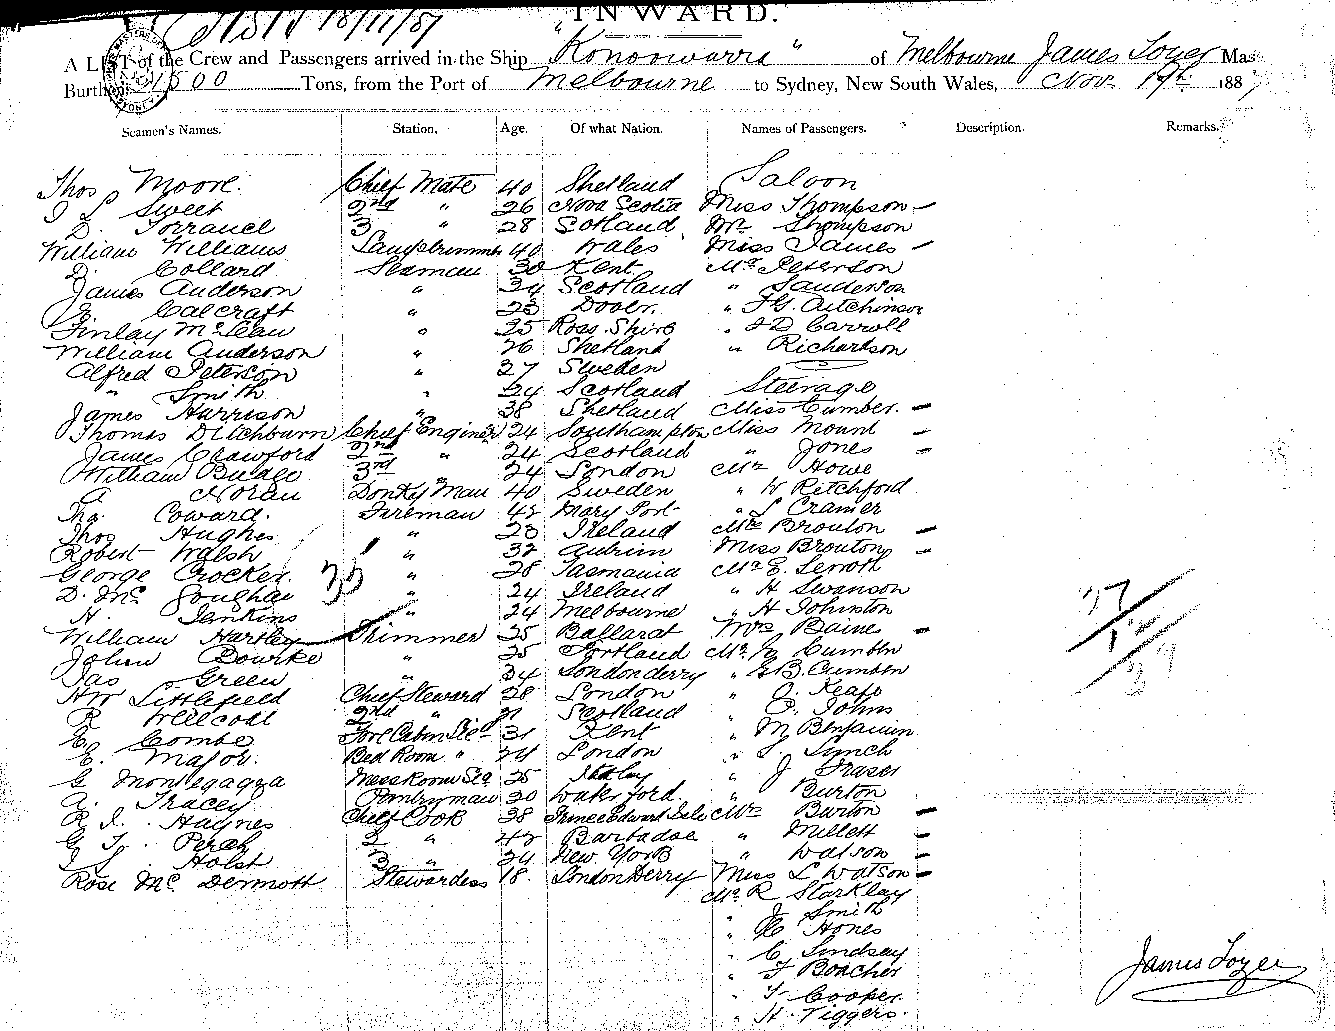 INWARD.
18/11/87
A LIST of the Crew and Passengers arrived in the Ship "Konoowarra" of Melbourne James Tozer Mas
Burthen 1500 Tons, from the Port of Melbourne to Sydney, New South Wales, Nov 19th 1887
Seamen's Names. Station. Age. Of what Nation. Names of Passengers. Description. Remarks.
Thos Moore. Chief Mate 40 Shetland Saloon
Sweet 2nd " 26 Nova Scotia Miss Thompson
D. Torrance 3 " 28 Scotland Mr Thompson
William Williams Lamptrimmer 40 Wales Miss James
Collard Seaman 30 Kent Mr Peterson
James Anderson " 34 Scotland " Sanderson
Calcraft " 23 Dover. "
Finlay McLean " 35 Ross Shire " Carroll
William Anderson " 26 Shetland " Richardson
Alfred Peterson " 27 Sweden
" Smith " 24 Scotland Steerage
James Harrison " 38 Shetland Miss Cumber.
Thomas Ditchburn Chief Engineer 24 Southampton Miss Mount
James Crawford 2nd " 24 Scotland " Jones
William Budge 3rd " 24 London Mr Howe
Donkey Man 40 Sweden " W Ritchford
Coward. Fireman 42 Mary Port " Cramer
Thos Hughes " 23 Ireland Mrs Brouton
Robert Walsh " 32 Antrim Miss Brouton
George Crocker. " 28 Tasmania Mr
D. Mc " 24 Ireland " H Swanson
H. Jenkins " 24 Melbourne " H Johnton
William Hartley Trimmer 25 Ballarat Mrs Baines
John Bourke " 25 Portland Mr
Jas Green " 34 Londonderry " Cumben
HW Littlefield Chief Steward 28 London "
R Wellcoat 2nd " Scotland " Johns
Combe Fore Cabin 31 Kent " M Benjamin
E. Major. Bed Room " 24 London " Lynch
G Montegazza Mess Room 25 Italy " J Fraser
A. Tracey Pantryman 20 Waterford " Burton
R. J. Haynes Chief Cook 38 Prince Edward Isle Mrs Burton
G T. Perch 2 " 42 Barbadoe " Millett
Holst 3 " 24 New York " Watson
Rose McDermott Stewardess 18. LondonDerry Miss L Watson
Mr R Starkley
" J Smith
" Hones
" C Lindsay
" F Boacher
" T Cooper.
" H. Tiggers.
James Tozer